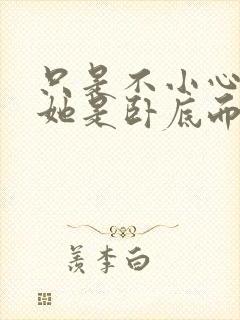 只是不小心
她是卧底而
羡李白